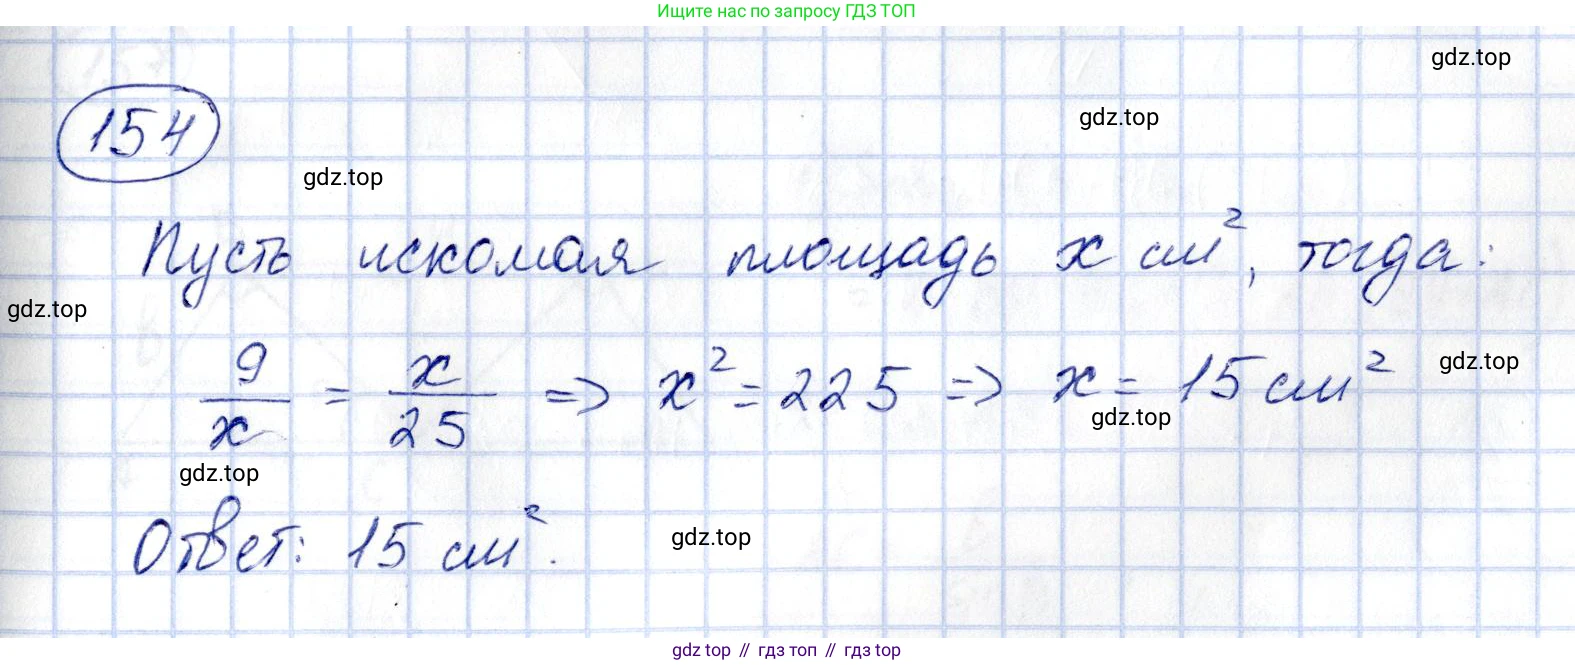 Ищите нас по запросу ГДЗ ТОП
gdz.top
gdz.top
154
gdz.top
Пусть искомая площадь x см², тогда:
gdz.top
9/x = x/25 => x² = 225 => x = 15 см²
gdz.top
gdz.top
gdz.top
Ответ: 15 см².
gdz.top
gdz.top // гдз топ // гдз top